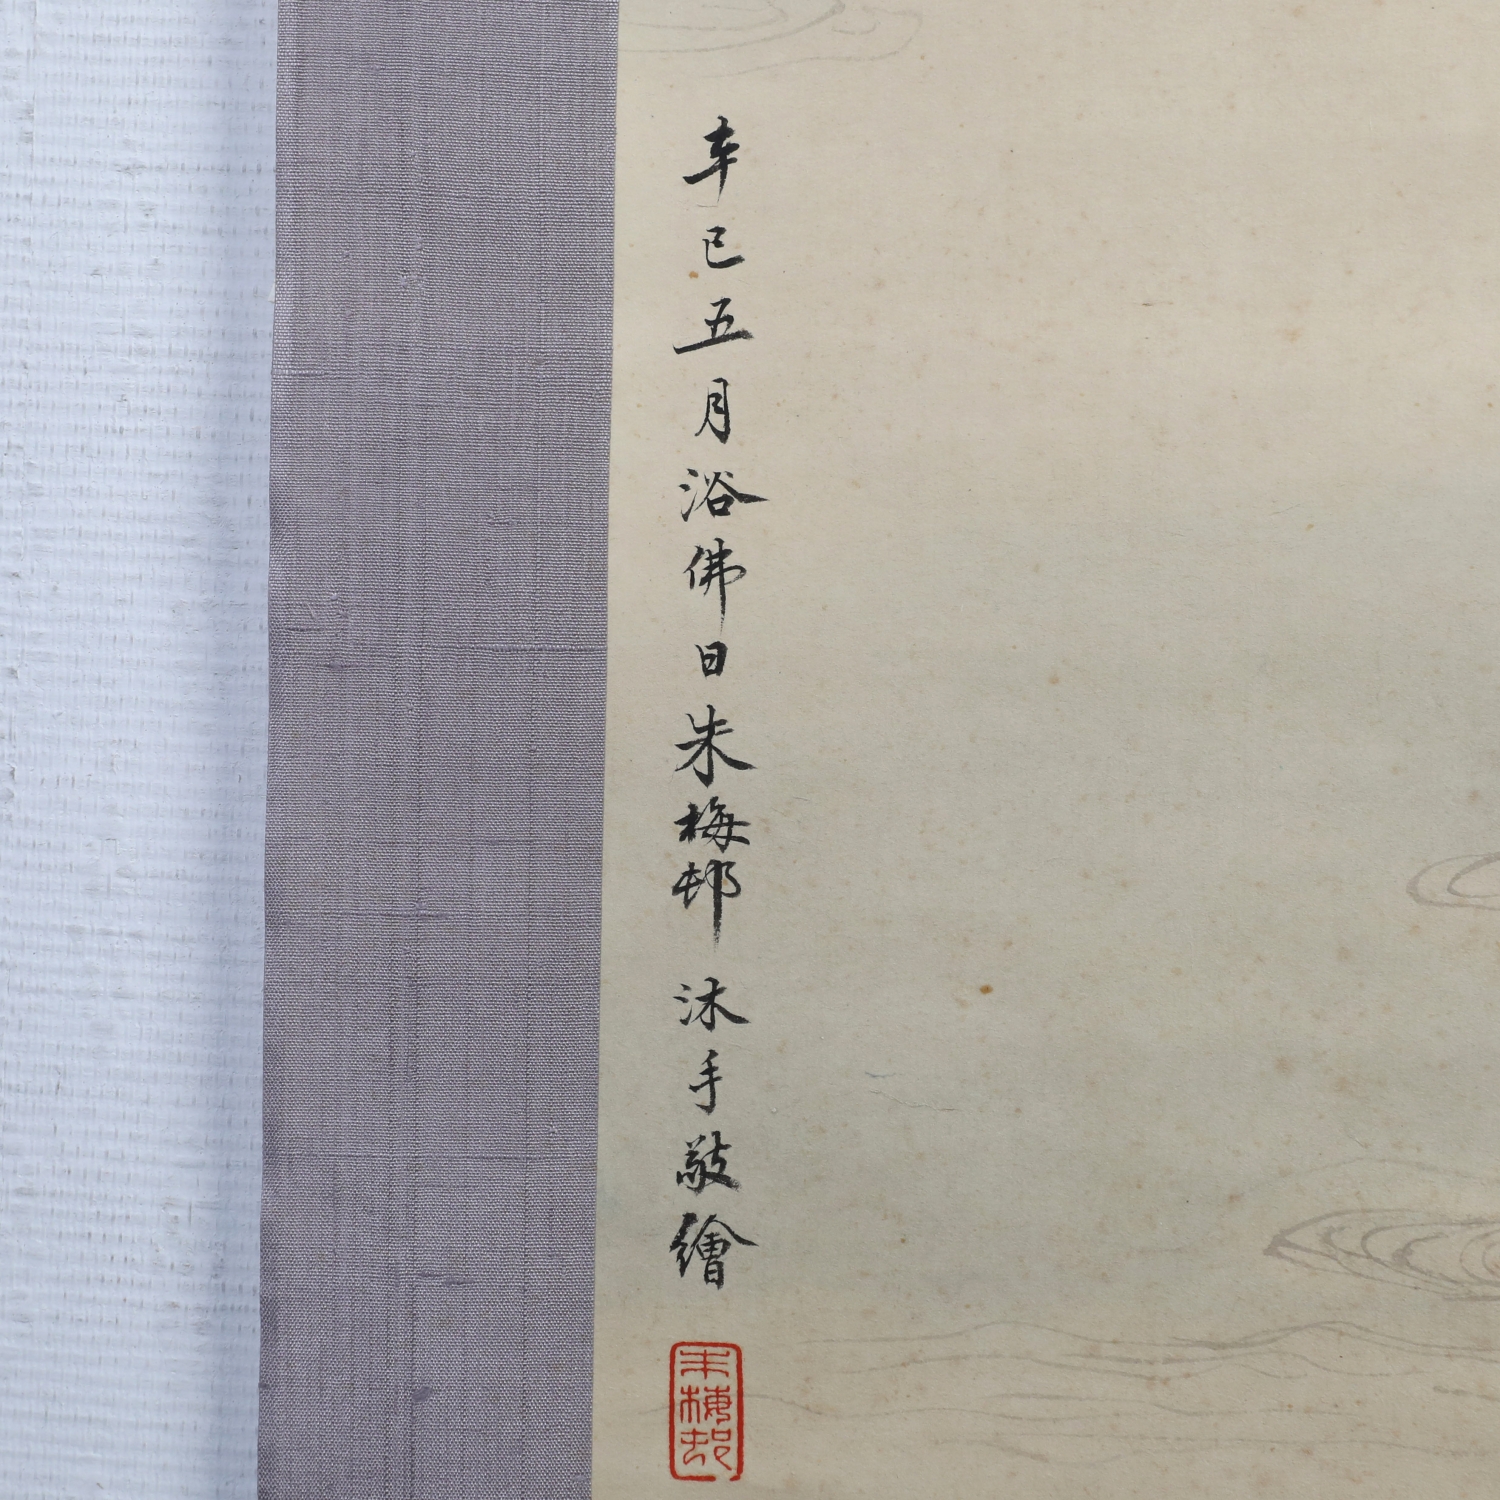 辛巳五月浴佛日朱梅邨沐手敬繪
朱梅邨